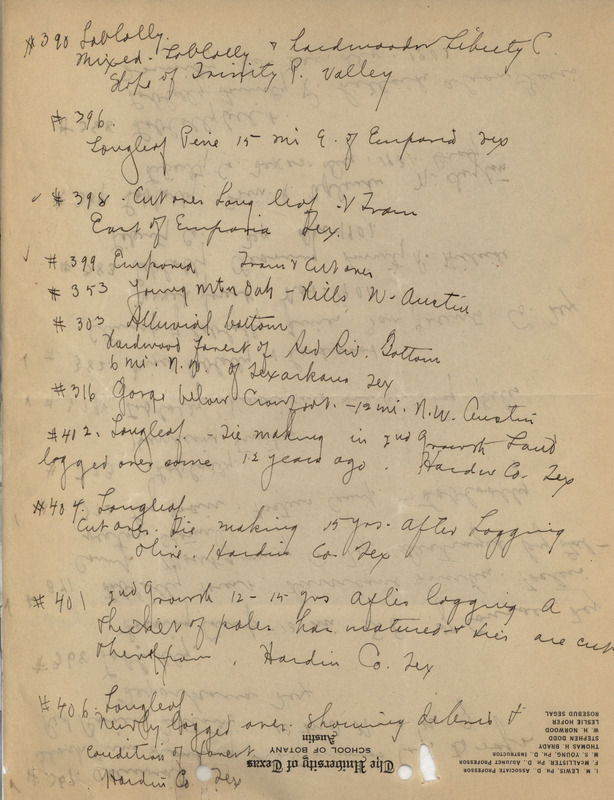 #390 Loblolly.
Mixed - Loblolly & hardwoods Liberty C.
Slope of Trinity R. Valley
#396.
Longleaf Pine 15 mi E. of Emporia Tex
#398. Cut over Long leaf & Tram
East of Emporia Tex.
#399 Emporia Tram & Cut over
#353 Young Mtn Oak - Hills W- Austin
#303 Alluvial bottom
Hardwood Forest of Red Riv. Bottom
6 mi. N. of Texarkana Tex
#316 Gorge below - 12 mi. N.W. Austin
#412. Longleaf. - Tie making in 2nd Growth Land
logged over some 12 years ago. Hardin Co. Tex
#404. Longleaf
Cut over. Tie making 15 yrs. after Logging
Olive. Hardin Co. Tex
#401 2nd Growth 12 - 15 yrs after logging A
thicket of poles has matured & ties are cut
therefrom. Hardin Co. Tex
#406. Longleaf
Newly logged over. showing debris &
condition of forest
Hardin Co Tex
The University of Texas
SCHOOL OF BOTANY
Austin
I. M. LEWIS, PH. D., ASSOCIATE PROFESSOR
F. MCALLISTER, PH. D., ADJUNCT PROFESSOR
M. S. YOUNG, PH. D., INSTRUCTOR
THOMAS H. BRADY
STEPHEN DODD
W. H. NORWOOD
LESLIE HOFER
ROSEBUD SEGAL